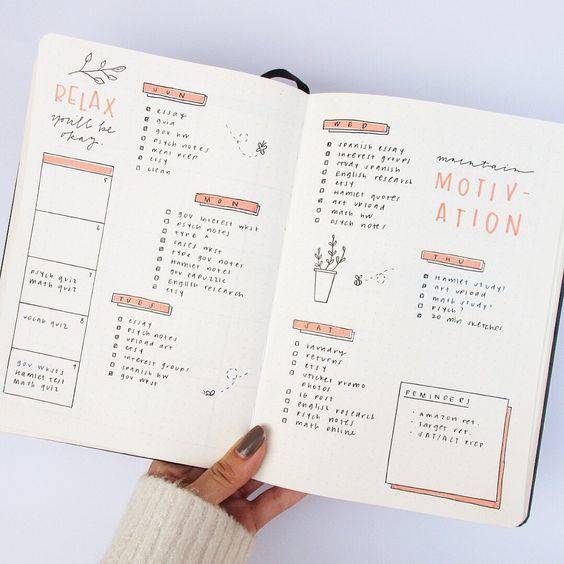 RELAX
you'll be
okay.
5
7
psych quiz
math quiz
8
vocab quiz
9
gov wksts
Hamlet test
math quiz
SUN
essay
quia
gov hw
psych notes
meal prep
etsy
clean
MON
gov interest wkst
psych notes
type ^
cases wkst
type gov notes
Hamlet notes
gov edpuzzle
English research
etsy
TUES
essay
psych notes
upload art
etsy
interest groups
spanish hw
gov wkst
WED
spanish essay
interest groups
study spanish
English research
etsy
Hamlet quotes
art upload
math hw
psych notes
maintain
MOTIV-
ATION
THU
Hamlet study!
art upload
math study!
psych?
20 min sketches
SAT
laundry
returns
etsy
sticker promo
photos
IG post
english research
psych notes
math online
REMINDERS
· Amazon ret.
· Target ret.
· SAT/ACT prep